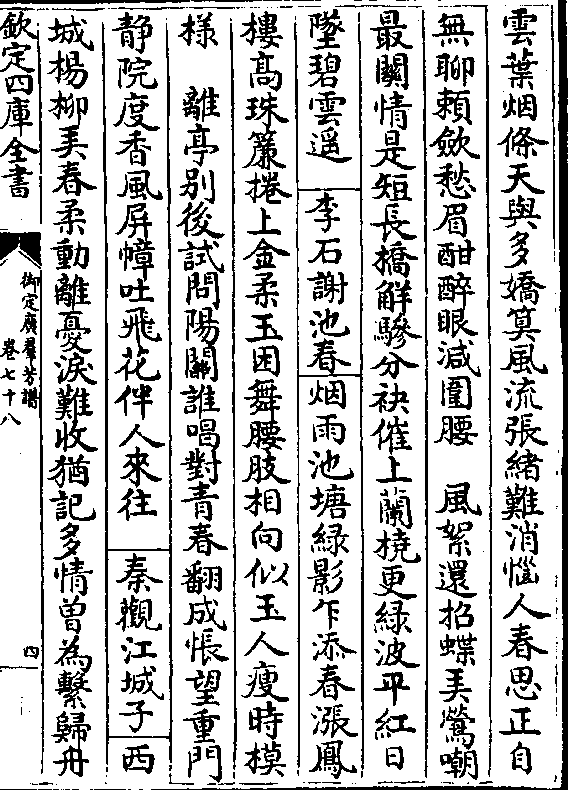 雲葉烟條天與多嬌算風流張緒難消惱人春思正自
無聊頼斂愁眉酣醉眼減圍腰　風絮還招蝶美鶯嘲
最關情是短長橋解驂分袂催上蘭橈更緑波平紅日
墜碧雲遥　李石謝池春　烟雨池塘緑影乍添春漲鳳
樓髙珠簾捲上金柔玉困舞腰肢相向似玉人瘦時模
様　離亭别後試問陽闗誰唱對青春翻成悵望重門
静院度香風屏幛吐飛花伴人來往　秦觀江城子　西
城楊柳美春柔動離憂淚難收猶記多情曾為繫歸舟
欽定四庫全書
御定廣羣芳譜
卷七十八
四